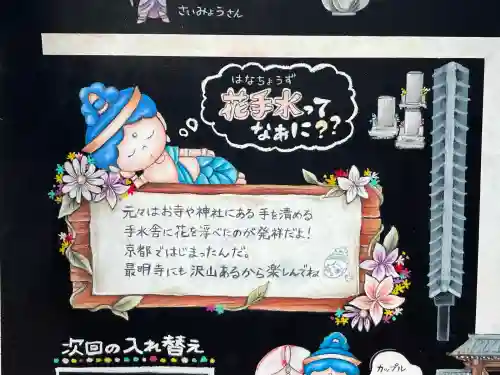 さいみょうさん
はなちょうず
花手水って
なぁに??
元々はお寺や神社にある手を清める
手水舎に花を浮べたのが発祥だよ!
京都ではじまったんだ。
最明寺にも沢山あるから楽しんでね
次回の入れ替え
カップル